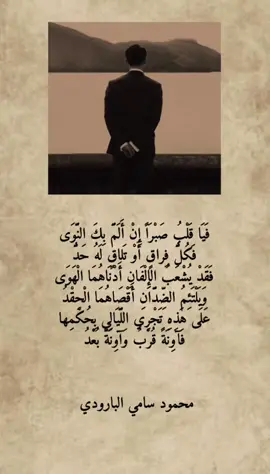 فَيَا قَلْبُ صَبْرَاً إِنْ أَلَمَّ بِكَ النَّوَى
فَكُلُّ فِراقٍ أَوْ تَلاقٍ لَهُ حَدُّ
فَقَدْ يُشْعَبُ الإِلْفَانِ أَدْنَاهُمَا الْهَوَى
وَيَلْتَئِمُ الضِّدَّانِ أَقْصَاهُمَا الْحِقْدُ
عَلَى هَذِهِ تَجْرِي اللَّيَالِي بِحُكْمِها
فَآوِنَةً قُرْبٌ وَآوِنَةً بُعْدُ
محمود سامي البارودي